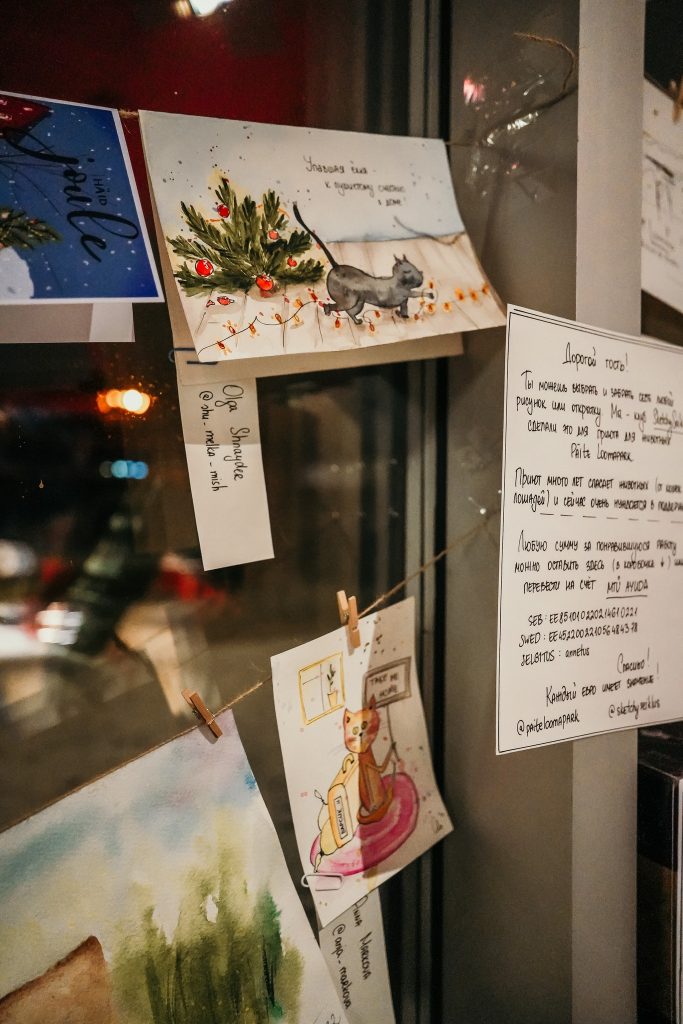 НАЙТО
joulle
Упавшая ёлка
к пушистому счастью
в доме!
Olga Shnayder
@shu-melka-mish
Дорогой гость!
Ты можешь выбрать и забрать себе любой
рисунок или открытку. Мы - клуб
сделали это для приюта для животных
Päite Loomapark
Приют много лет спасает животных (от кошек
лошадей) и сейчас очень нуждается в
Любую сумму за понравившуюся работу
можно оставить здесь (в коробочке ↓) или
перевести на счёт MTÜ AYUDA
SEB: EE851010220214610221
SWED: EE452200221056484378
SELGITUS: annetus
Спасибо!
Каждый евро имеет значение!
@paiteloomapark @sketchyseiklus
TAKE ME
HOME
Anna Markova
@anja-markova